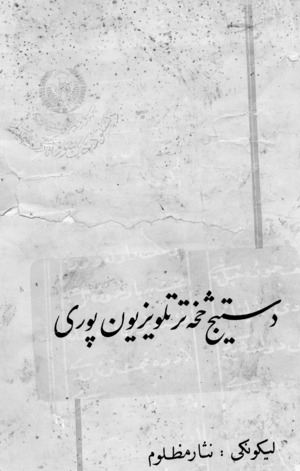 د ستيج څخه تر تلويزيون پورې
ليکونکې : نثار مظلوم